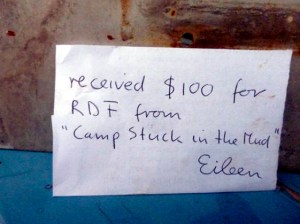 received $100 for
RDF from
"Camp Stuck in the Mud"
Eileen